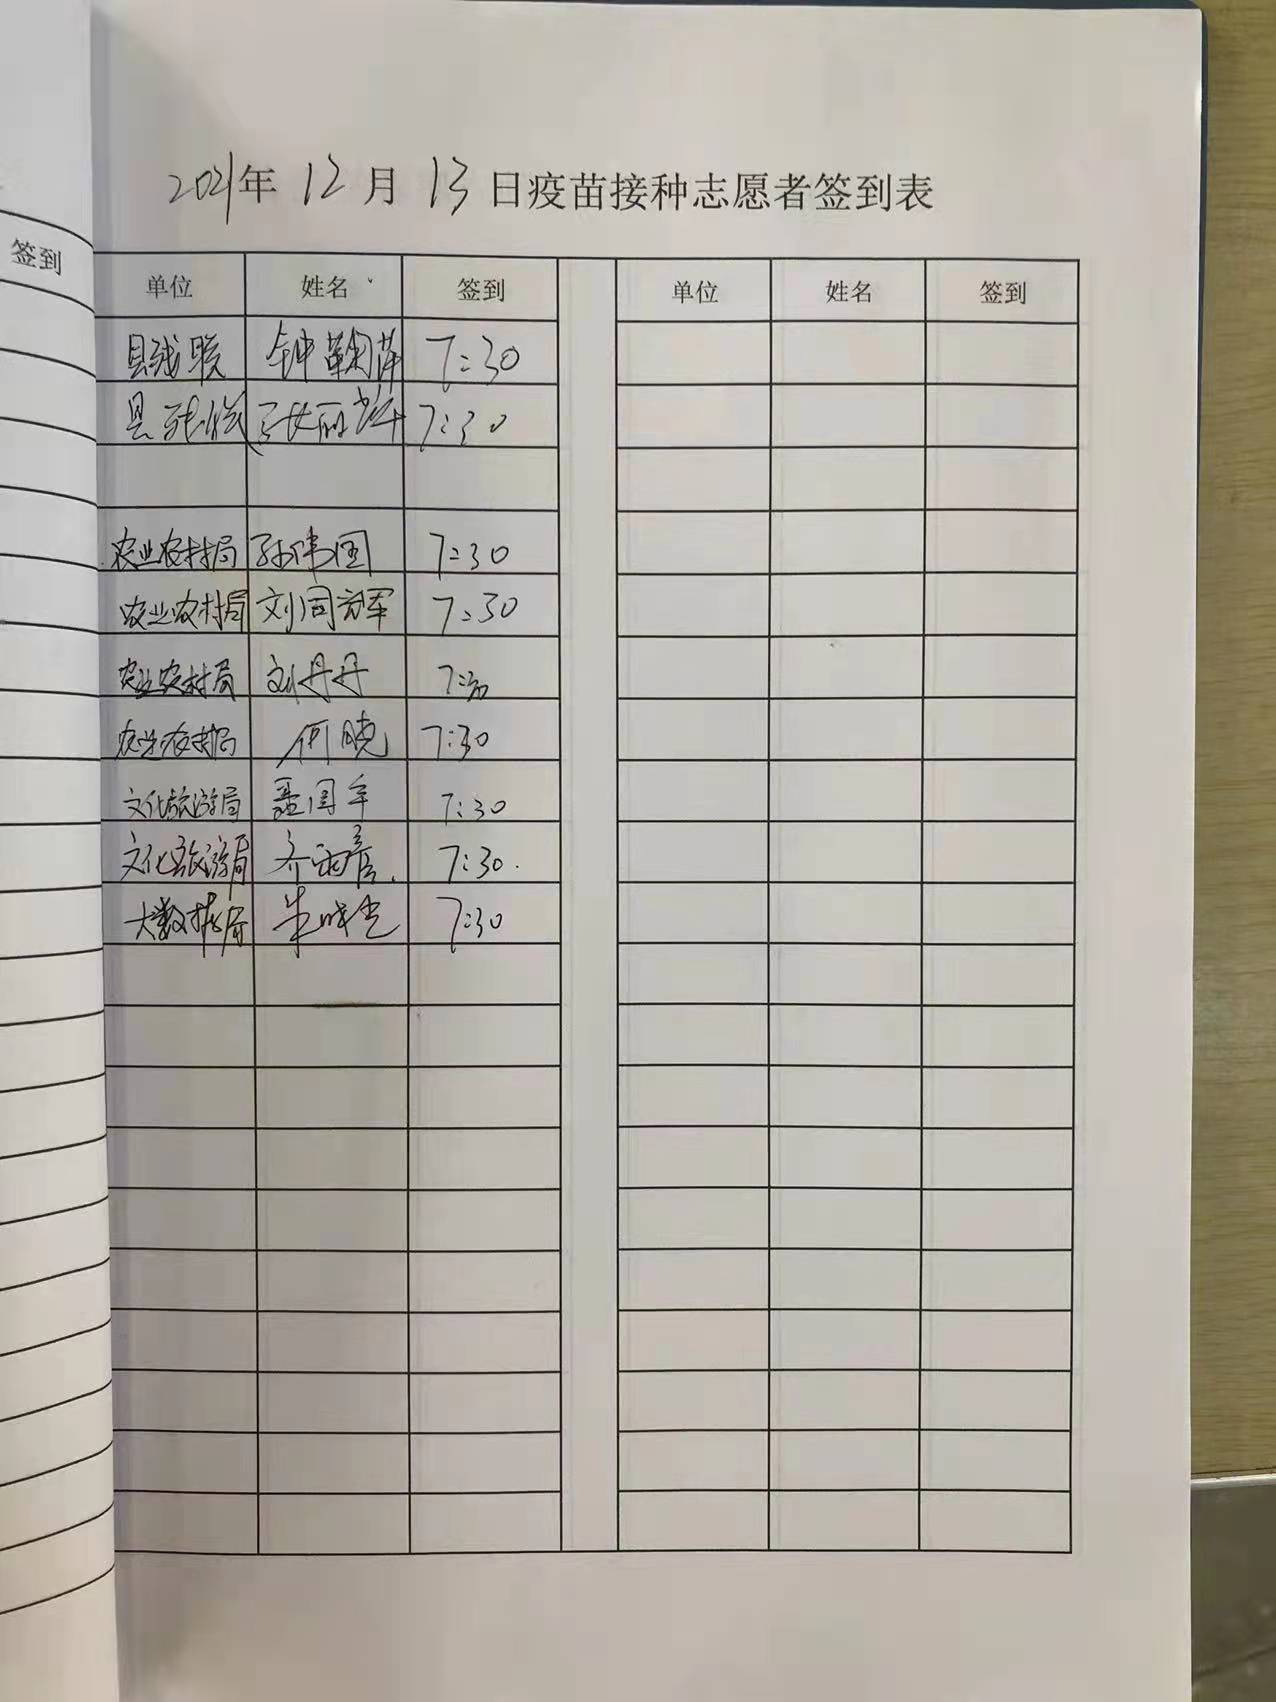 2021年12月13日疫苗接种志愿者签到表
签到
单位 姓名 签到 单位 姓名 签到
县残联 钟鞠萍 7:30
县残联 张丽 7:30
农业农村局 孙伟国 7:30
农业农村局 刘同军 7:30
农业农村局 刘丹丹 7:30
农业农村局 何晓 7:30
文化旅游局 聂国军 7:30
文化旅游局 齐 7:30
大数据局 朱晓 7:30